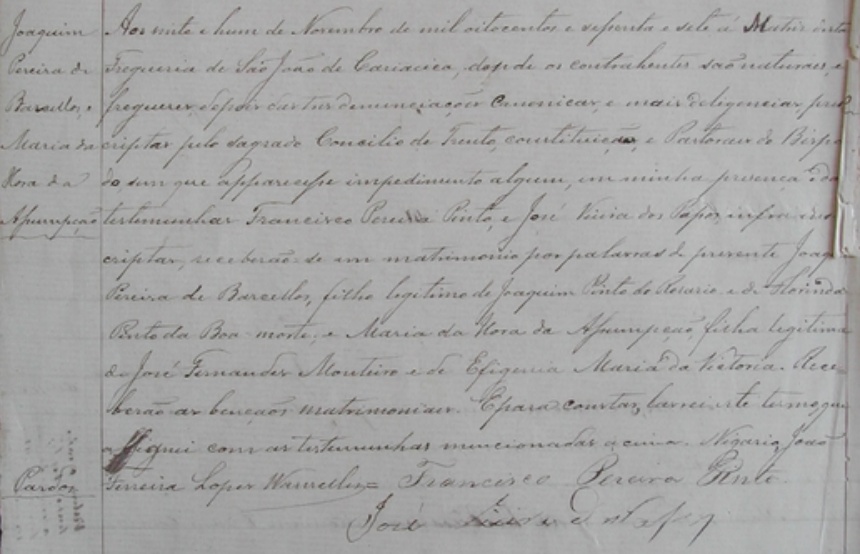 Joaquim
Pereira de
Barcellos, e
Maria da
Hora da
Assumpção
Aos vinte e hum de Novembro de mil oitocentos e septenta e sete á Matriz desta
Freguesia de São João de Cariacica, donde os contrahentes são naturaes, e
freguezes, depois das tres denunciações canonicas, e mais deligencias, pres
criptas pelo sagrado Concilio de Trento, constituição, e Pastoraes do Bispa
do sem que apparecesse impedimento algum, em minha presença e das
testemunhas Francisco Pereira Pinto, e José Vieira dos Passos, infra ins
criptas, receberão-se em matrimonio por palavras de presente Joaq
Pereira de Barcellos, filho legitimo de Joaquim Pinto do Rosario e de Florinda
Pinto da Boa-morte, e Maria da Hora da Assumpção, filha legitima
de José Fernandes Monteiro e de Efigenia Maria da Victoria. Rece-
berão as benções matrimoniaes. E para constar, lavrei este termo que
assignei com as testemunhas mencionadas acima. Vigario, João
Ferreira Lopes Wanzelles = Francisco Pereira Pinto
José Vieira
Pardos